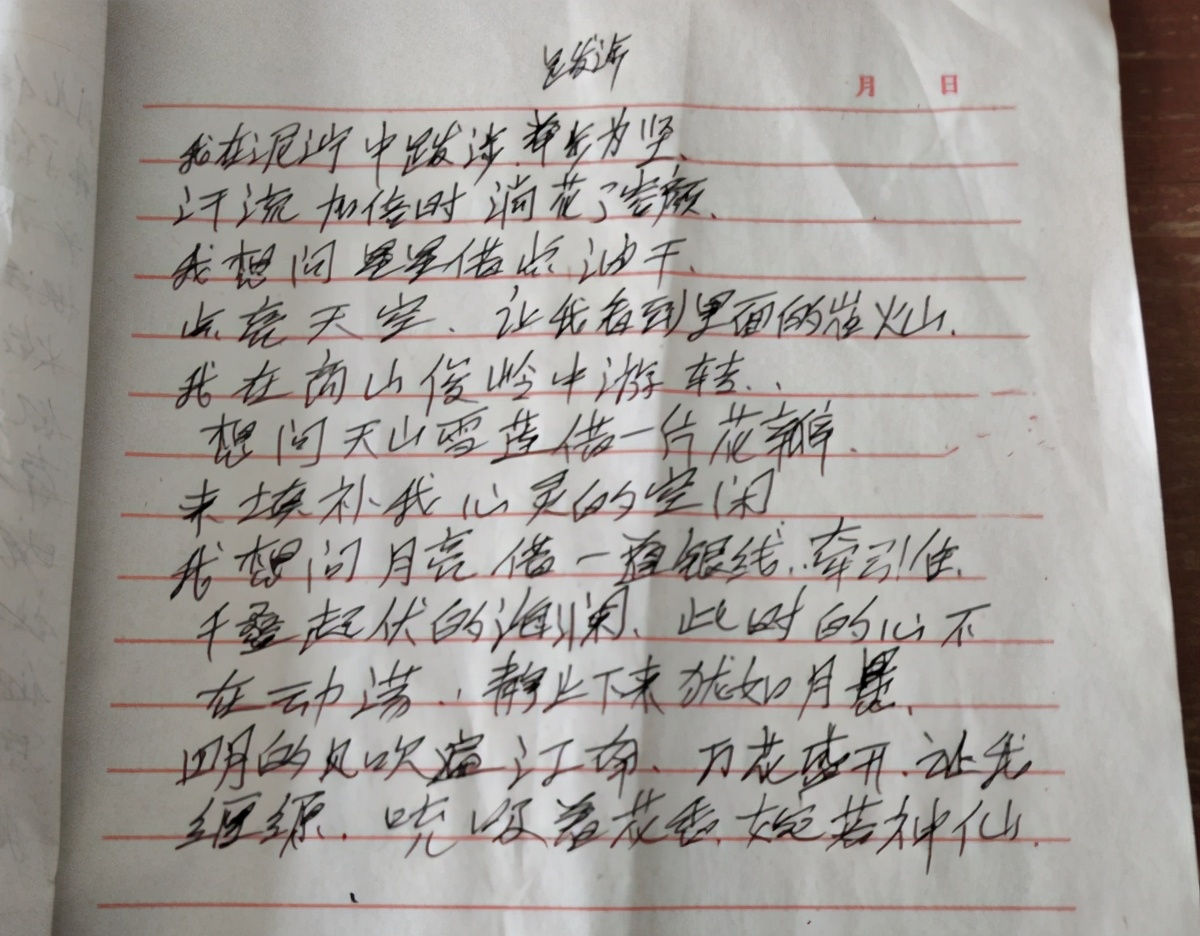 月 日
我在泥泞中跋涉.举步为坚、
汗流加倍时 淌花了容颜、
我想问星星借点油干、
点亮天空、让我看到里面的岩火山.
我在高山俊岭中游转..
想问天山雪莲借一片花瓣.
来填补我心灵的空闲
我想问月亮借一道银线..牵引住、
千叠起伏的海澜、此时的心不
在动荡.静止下来犹如月悬、
四月的风吹遍江南、万花盛开.让我
缠绵.吮吸着花香.婉若神仙.